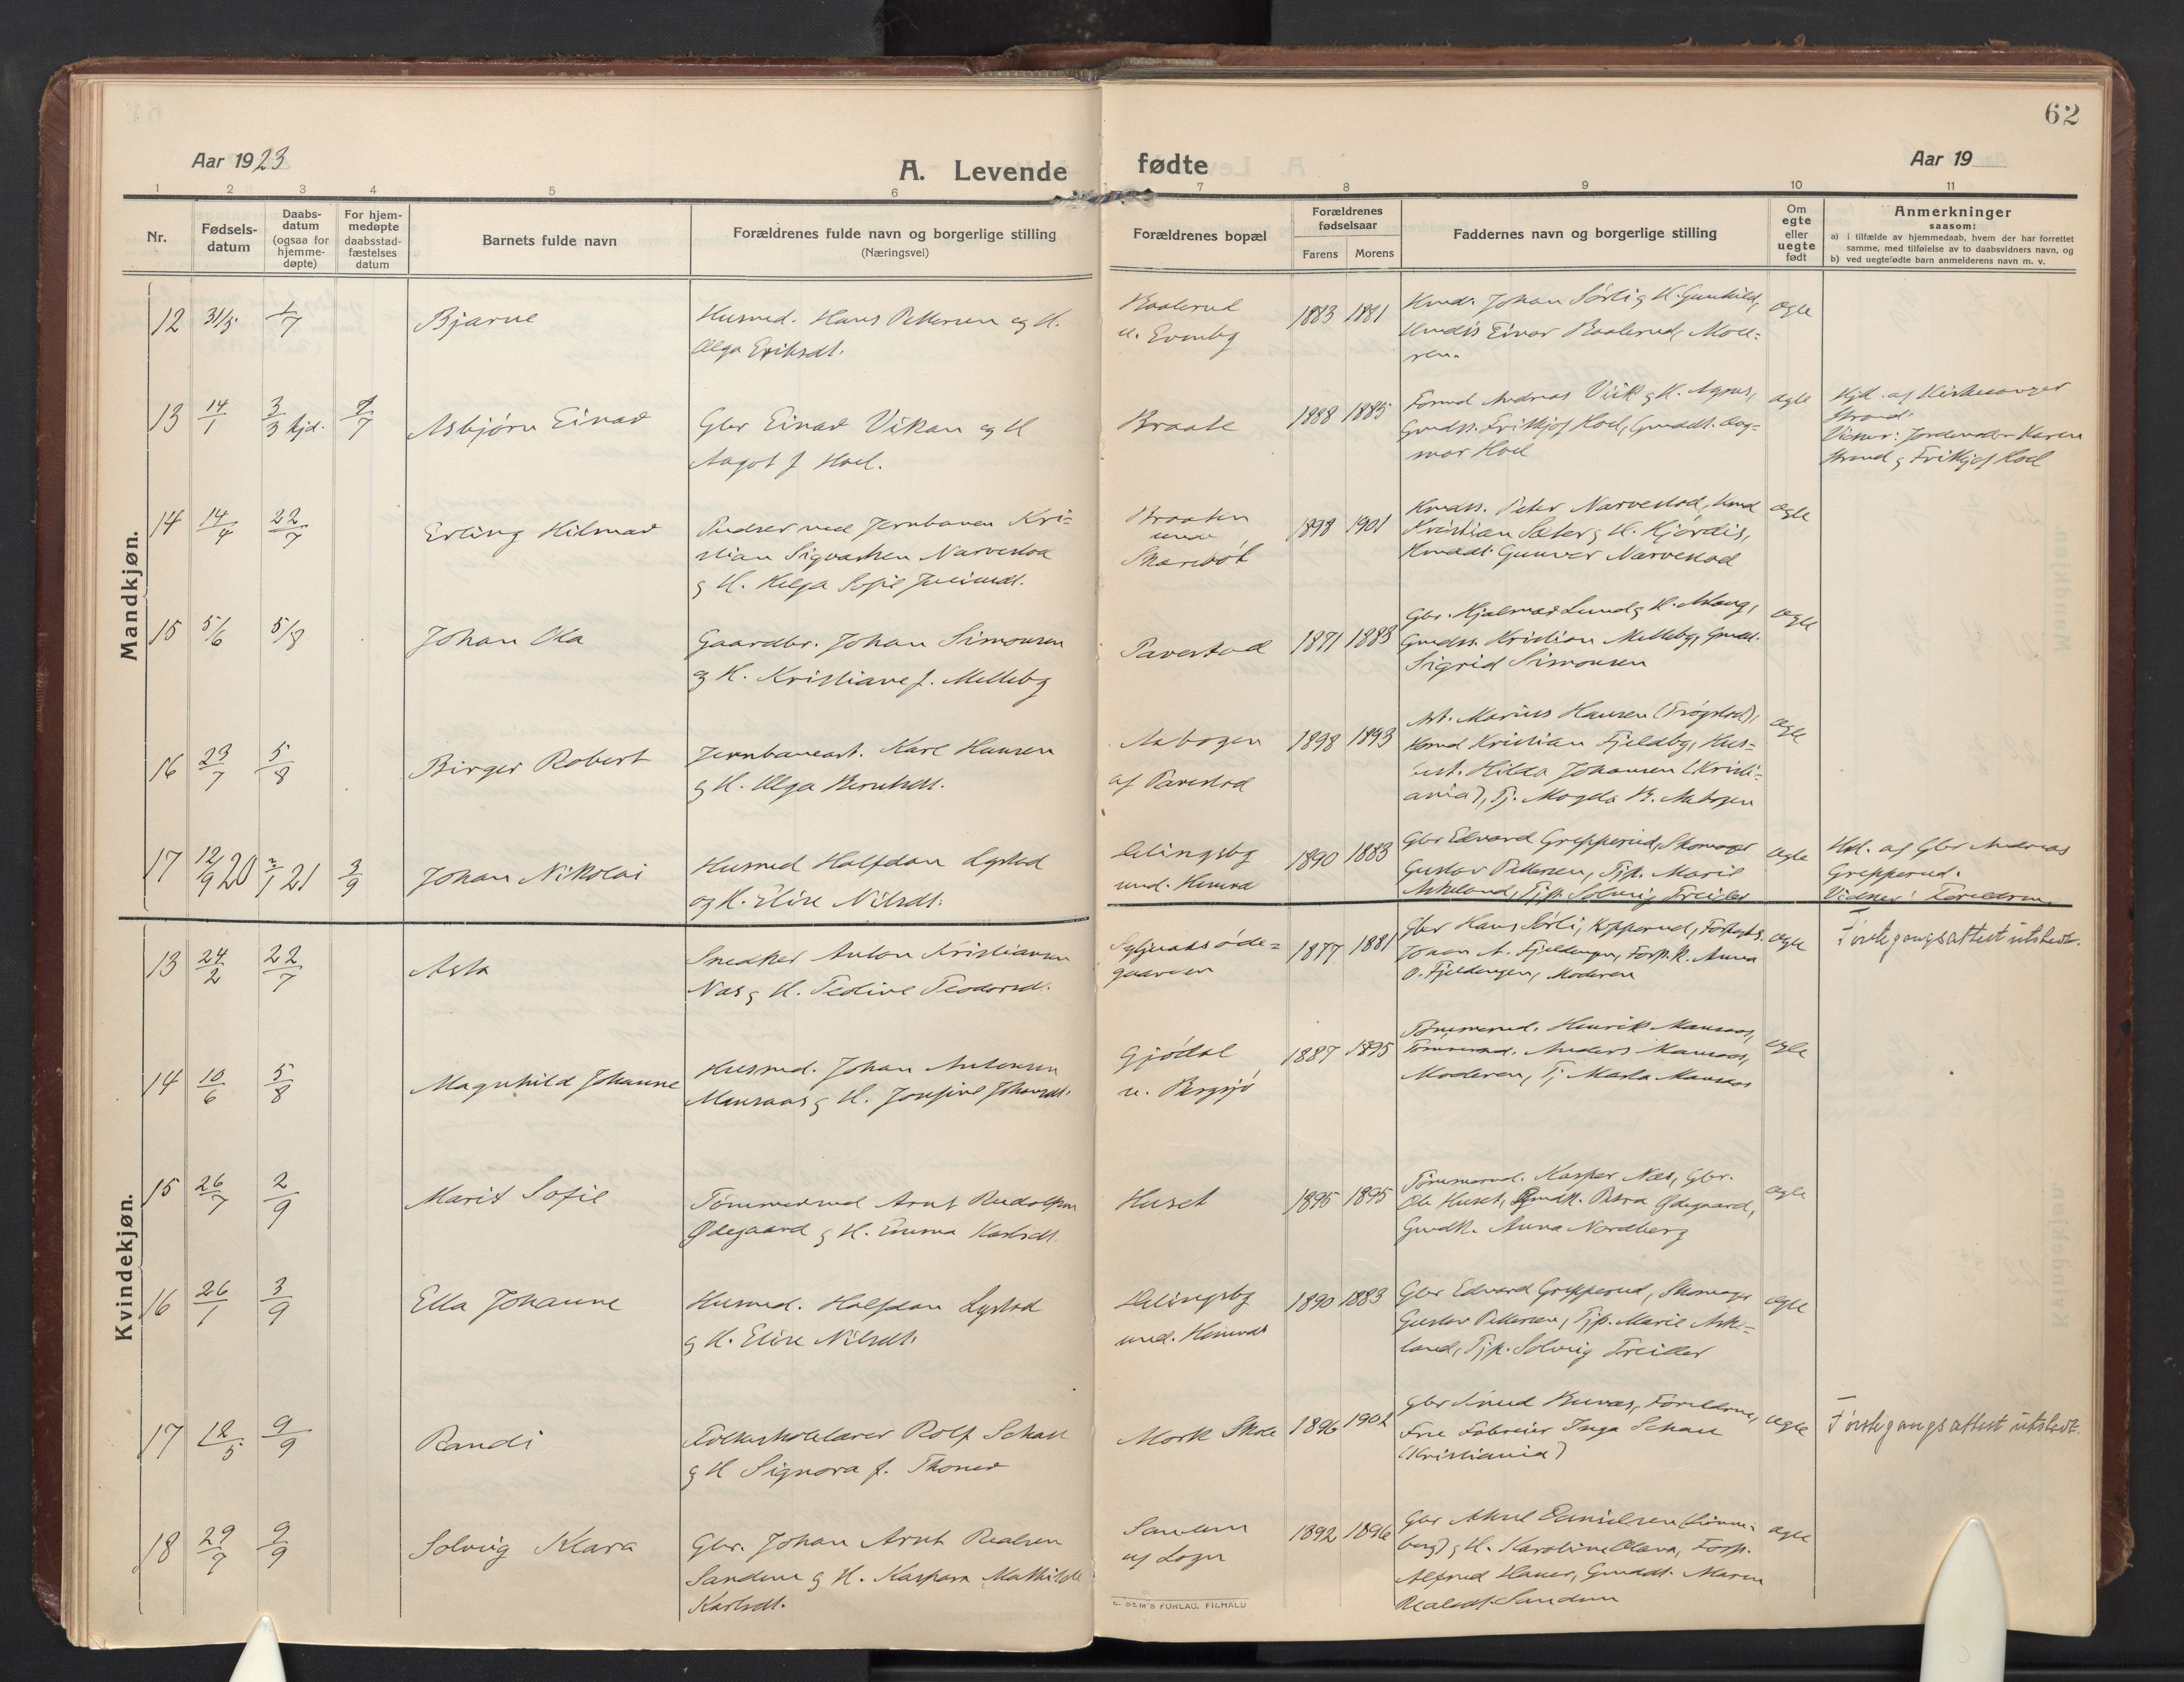 62
Aar 1923
A. Levende
fødte
Aar 19
1 2 3 4 5 6 7 8 9 10 11
Nr.
Fødsels-
datum
Daabs-
datum
(ogsaa for
hjemme-
døpte)
For hjem-
medøpte
daabsstad-
fæstelses
datum
Barnets fulde navn
Forældrenes fulde navn og borgerlige stilling
(Næringsvei)
Forældrenes bopæl
Forældrenes
fødselsaar
Farens Morens
Faddernes navn og borgerlige stilling
Om
egte
eller
uegte
født
Anmerkninger
saasom:
a) i tilfælde av hjemmedaab, hvem der har forrettet
samme, med tilføielse av to daabsvidners navn, og
b) ved uegtefødte barn anmelderens navn m. v.
Mandkjøn.
12 31/5 1/7 Bjarne
Husmd. Hans Pettersen og H.
Olga Eriksdt.
1883 1881
Johan Sørli og H. Gunhild,
Einar
ren.
ægte
13 14/1 3/3 hjd. 1/7 Asbjørn Einar
Gbr Einar Vikan og H
Aagot f. Hoel.
Braate
1888 1885
Andreas Viik og H. Agnes,
Gmdss. Frithjof Hoel, Gmdsdt. Dag=
mar Hoel
ægte
Hjd. af Kirkesanger
Strand.
Vidner: Jordmoder Karen
Strand og Frithjof Hoel
14 14/4 22/7 Erling Hilmar
Pudser ved Jernbanen Kri=
stian Sigvartsen Narvestad
og H. Helga Sofie
Braaten
under
1898 1901
Peter Narvestad,
Kristian Sæter og H. Hjørdis,
Gunvor Narvestad
ægte
15 5/6 5/8 Johan Ola
Gaardbr. Johan Simonsen
og H. Kristiane f. Melleby
1871 1883
Gbr. Hjalmar Lund og H. Aslaug,
Gmdss. Kristian Melleby, Gmdt.
Sigrid Simonsen
ægte
16 23/7 5/8 Birger Robert
Jernbanearb. Karl Hansen
og H. Olga Berntsdt.
Aabogen
af
1898 1893
Arb. Marius Hansen (Trøgstad),
Kristian Fjeldby, Hus=
best. Hilda Johansen (Kristi=
ania), Tj. Magda B. Aabogen
ægte
17 12/9 20 2/1 21 3/9 Johan Nikolai
Husmd Halfdan Lystad
og H. Elise Nilsdt.
1890 1883
Gbr Edvard Grepperud, Skomager
Gustav Pettersen, Tjp. Marie
Askeland, Tjp. Solveig Treider
ægte
Hd. af Gbr Andreas
Grepperud.
Vidner: Forældrene
Kvindekjøn.
13 24/2 22/7 Asta
Snedker Anton Kristiansen
Næs og H. Tedine Teodorsdt.
1877 1881
Gbr Hans Sørli, Kopperud,
Johan A. Fjeldengen, Anna
O. Fjeldengen, Moderen
ægte
Førstegangsattest utstedt.
14 10/6 5/8 Magnhild Johanne
Husmd. Johan Antonsen
og H. Josefine Johansdt.
Gjødal
u. Bergsjø
1887 1895
Tømmermd. Henrik
Tømmermd. Anders
Moderen, Tj. Marta
ægte
15 26/7 2/9 Marit Sofie
Tømmermd Arnt Rudolfsen
Ødegaard og H. Emma Karlsdt.
Huset
1895 1895
Tømmermd. Kasper Næs, Gbr.
Ole Huset, Gmdk. Petra Ødegaard,
Gmdk. Anna Nordberg
ægte
16 26/1 3/9 Ella Johanne
Husmd. Halfdan Lystad
og H. Elise Nilsdt.
1890 1883
Gbr Edvard Grepperud, Skomager
Gustav Pettersen, Tjp. Marie Aske=
land, Tjp. Solveig Treider
ægte
17 12/5 9/9 Randi
Folkeskolelærer Rolf Schau
og H Signora f. Thoner
Mork Skole
1896 1902
Gbr Knud Buraas, Forældrene,
Frue Fabreier Inga Schau
(Kristiania)
ægte
Førstegangsattest utstedt.
18 29/7 9/9 Solveig Klara
Gbr. Johan Arnt Realsen
Sandem og H. Kaspara Mathilde
Karlsdt.
Sandem
1892 1896
Gbr Aksel Danielsen
og H. Karoline Olava, Forp.
Alfred Haver, Gmdsdt. Maren
Realsdt. Sandem
ægte
E. SEM'S FORLAG, F.HALD